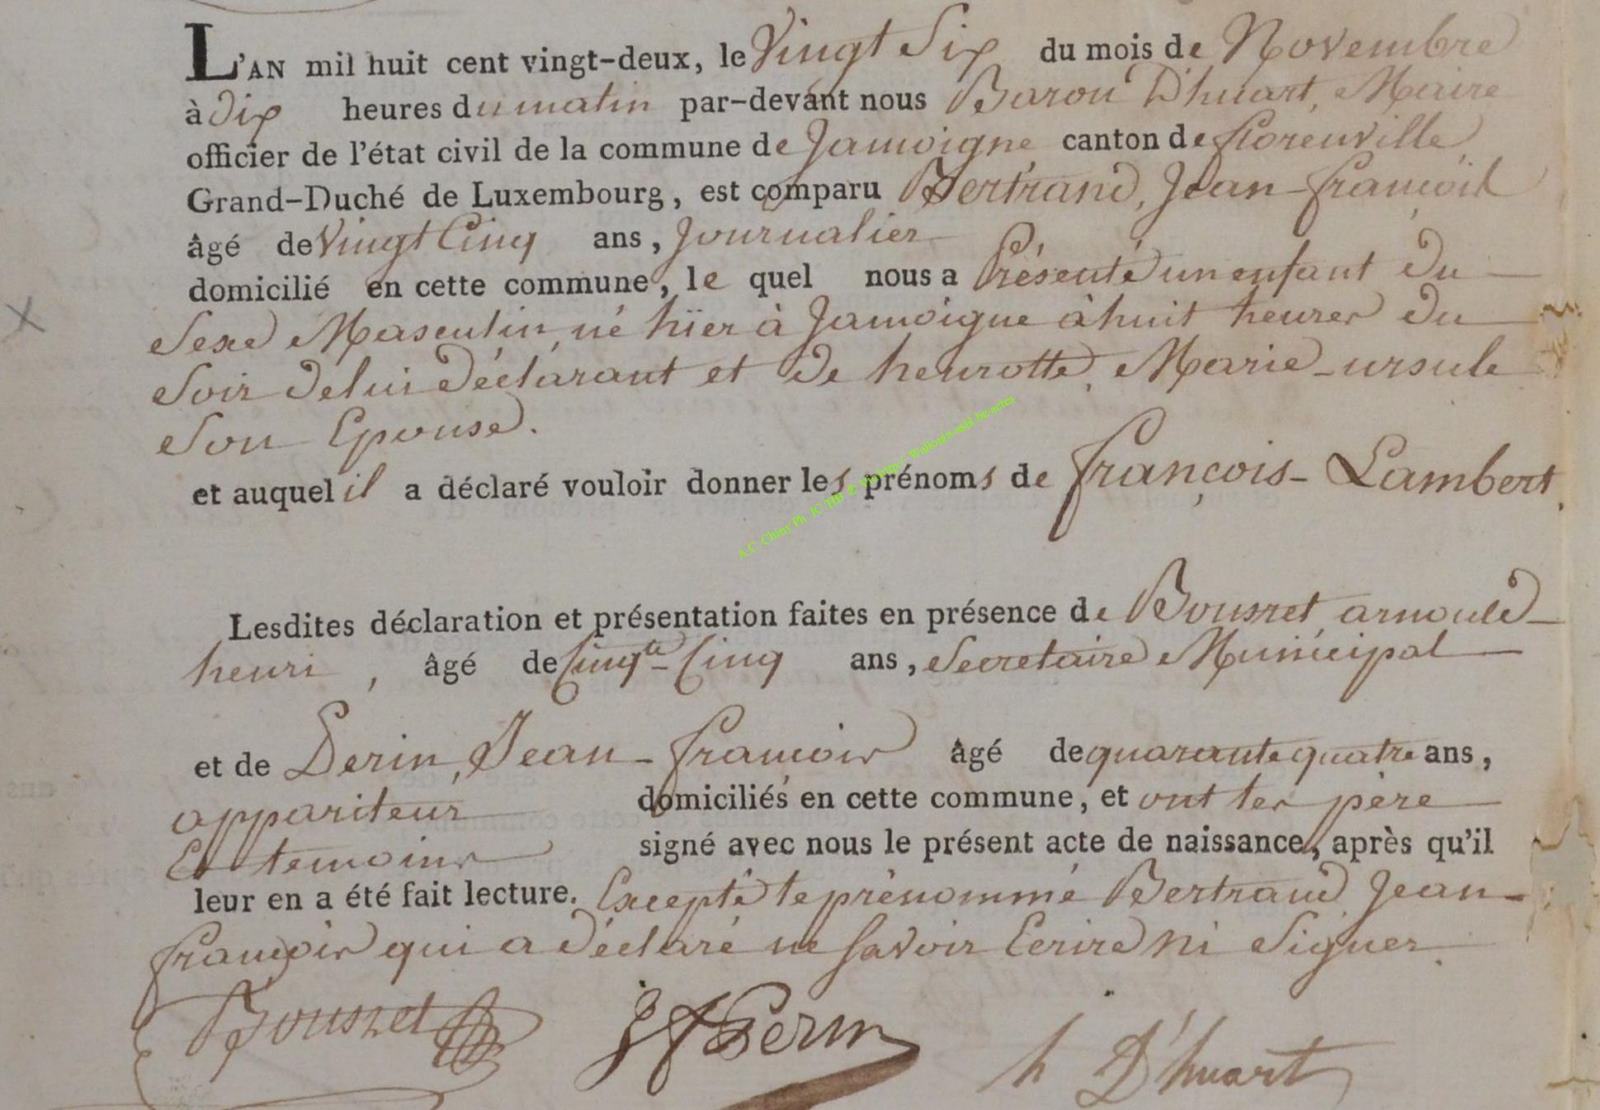 L'AN mil huit cent vingt-deux, le Vingt Six du mois de Novembre
à dix heures du matin par-devant nous Baron D'huart, Maire
officier de l'état civil de la commune de Jamoigne canton de florenville
Grand-Duché de Luxembourg, est comparu Bertrand, Jean-françois
âgé de Vingt Cinq ans, Journalier
domicilié en cette commune, le quel nous a Présenté un enfant du
Sexe Masculin, né hier à Jamoigne à huit heures du
Soir de lui déclarant et de henrotte, Marie-ursule
Son Epouse.
et auquel il a déclaré vouloir donner les prénoms de françois-Lambert.
Lesdites déclaration et présentation faites en présence de Bousret, arnould
henri, âgé de Cinqte-Cinq ans, Secretaire Municipal
et de Perin, Jean-françois âgé de quarante quatre ans,
appariteur domiciliés en cette commune, et ont les père
Et temoins signé avec nous le présent acte de naissance, après qu'il
leur en a été fait lecture. Excepté le prénommé Bertrand Jean-
françois qui a déclaré ne Savoir Ecrire ni Signer.
Bousret J f Perin h D'huart